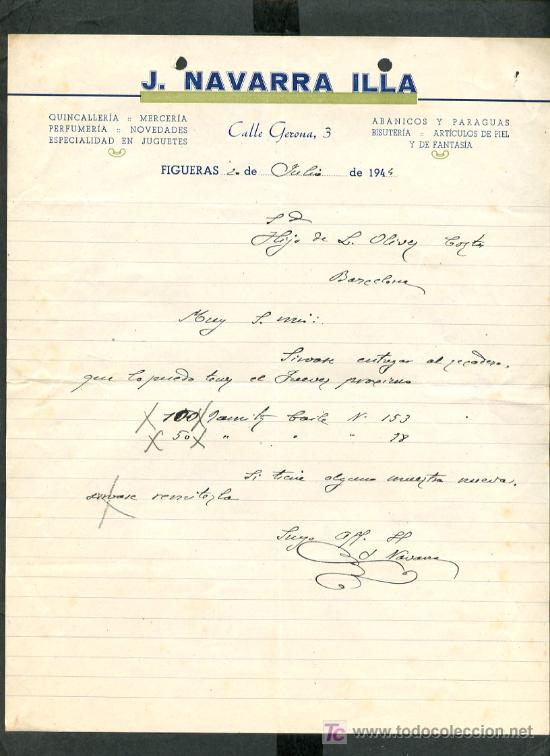 J. NAVARRA ILLA
QUINCALLERÍA :: MERCERÍA
PERFUMERÍA :: NOVEDADES
ESPECIALIDAD EN JUGUETES
Calle Gerona, 3
ABANICOS Y PARAGUAS
BISUTERÍA :: ARTÍCULOS DE PIEL
Y DE FANTASÍA
FIGUERAS 20 de Julio de 1944
Sd
Hijo de L. Oliver Costa
Barcelona
Muy S. mio:
Sirvase entregar al recadero,
que lo pueda tener el Jueves proximo
100 Baile N. 153
50 " " " 78
Si tiene alguna muestra nueva,
sirvase remitirla
Suyo
J Navarra
TC todocoleccion
www.todocoleccion.net